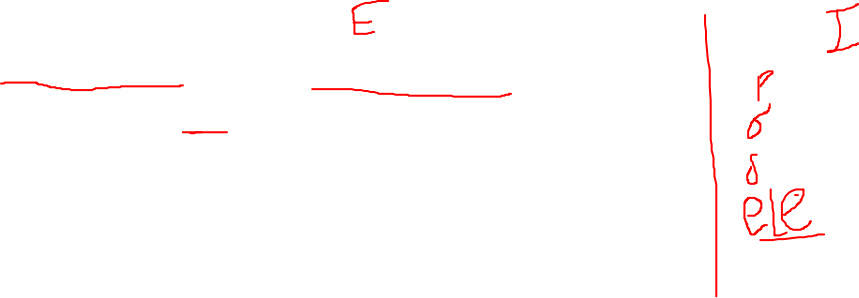 E
I
P
σ
δ
ele